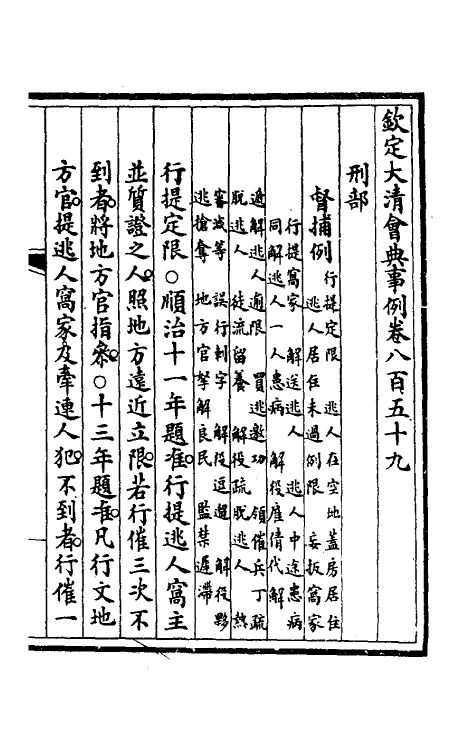 欽定大清會典事例卷八百五十九
刑部
督捕例 行提定限 逃人在空地蓋房居住
逃人居住未過例限 妄扳窩家
行提窩家 解送逃人 逃人中途患病
同解逃人一人患病 解役雇倩代解
遞解逃人逾限 買逃邀功 領催兵丁疏
脫逃人 徒流留養 解役疏脫逃人 熱
審減等 誤行刺字 解役逗遛 解役夥
逃搶奪 地方官拏解良民 監禁遲滯
行提定限○順治十一年題准行提逃人窩主
並質證之人照地方遠近立限若行催三次不
到者將地方官指參○十三年題准凡行文地
方官提逃人窩家及牽連人犯不到者行催一